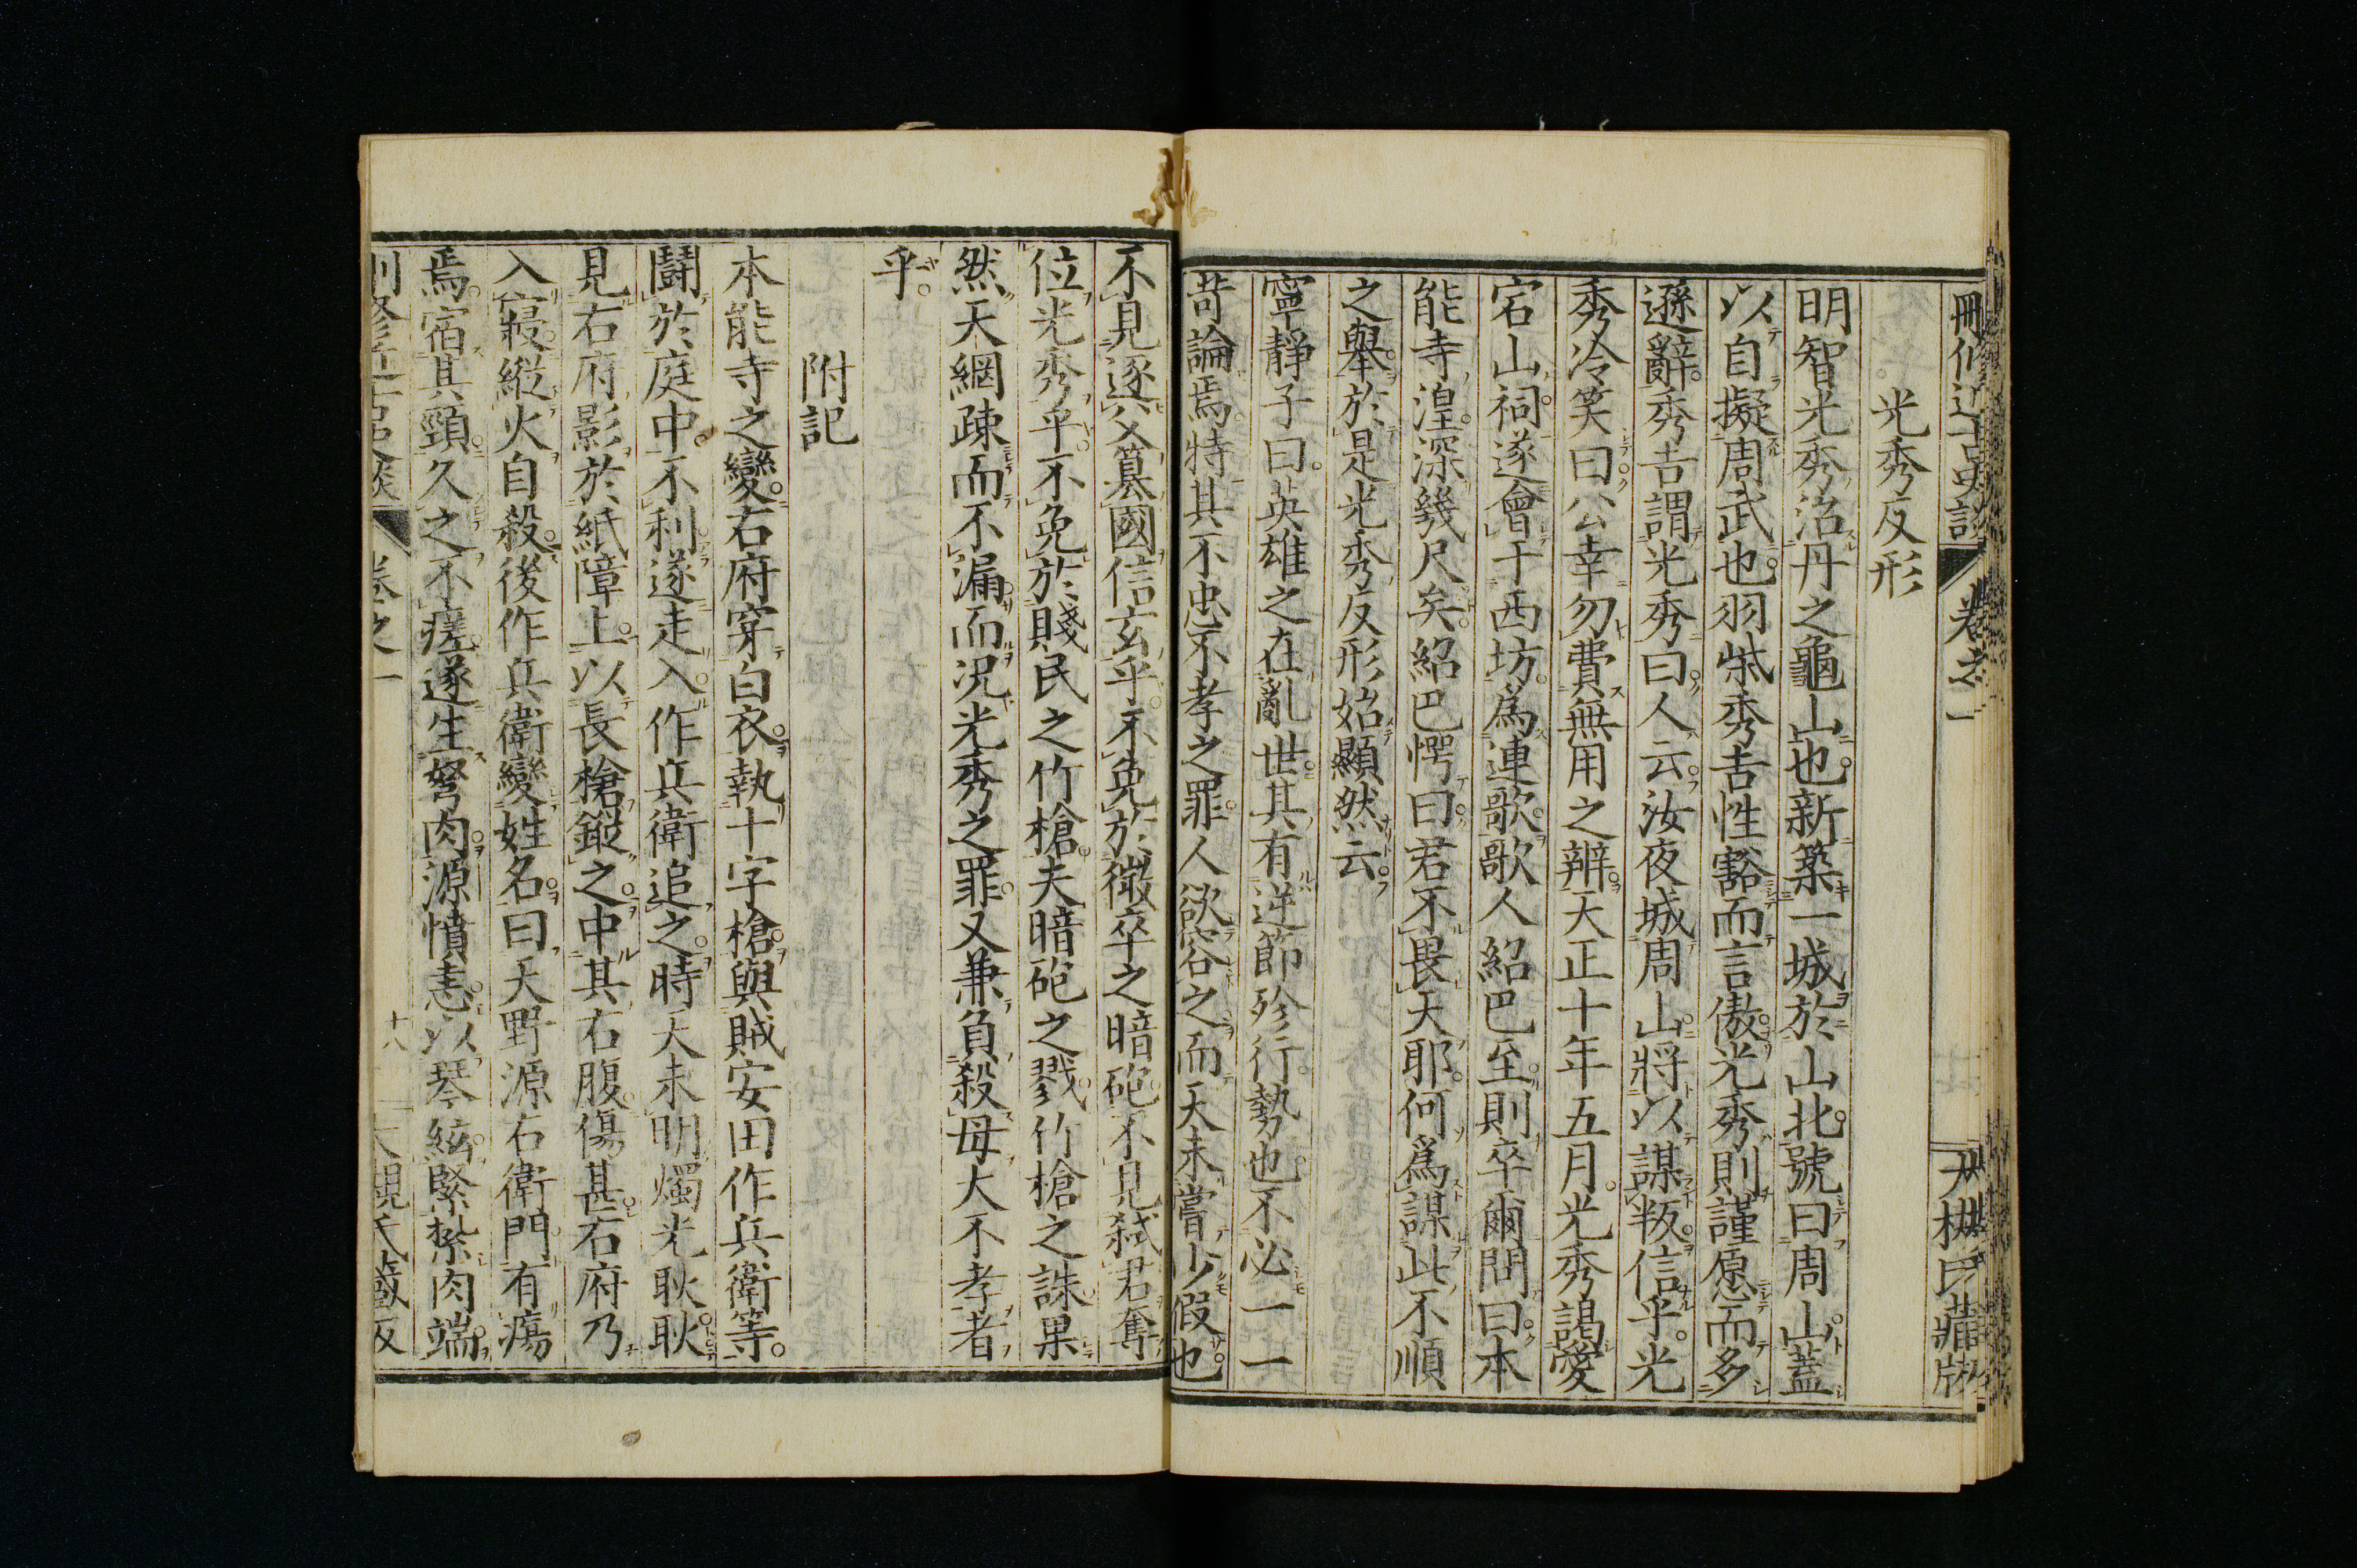 刪修近古史談 卷之一 大槻氏藏版
光秀反形
明智光秀治丹之龜山也。新築一城於山北。號曰周山。蓋
以自擬周武也。羽柴秀吉性豁而言傲。光秀則謹愿而多
遜辭。秀吉謂光秀曰。人云。汝夜城周山。將以謀叛。信乎。光
秀冷笑曰。公幸勿費無用之辨。天正十年五月。光秀謁愛
宕山祠。遂會于西坊。爲連歌。歌人紹巴至。則卒爾問曰。本
能寺湟深幾尺矣。紹巴愕曰。君不畏天耶。何爲謀此不順
之擧。於是光秀反形始顯然云。
寧靜子曰。英雄之在亂世。其有逆節殄行。勢也。不必一一
苛論焉。特其不忠不孝之罪。人欲容之。而天未嘗少假也。
不見逐父簒國信玄乎。不免於微卒之暗砲。不見弑君奪
位光秀乎。不免於賤民之竹槍。夫暗砲之戮。竹槍之誅。果
然天網疎而不漏。而況光秀之罪。又兼負殺母大不孝者
乎。
附記
本能寺之變。右府穿白衣。執十字槍。與賊安田作兵衛等。
鬪於庭中。不利。遂走入。作兵衛追之。時天未明。燭光耿耿。
見右府影於紙障上。以長槍鏦之。中其右腹。傷甚。右府乃
入寢。縱火自殺。後作兵衛變姓名。曰天野源右衛門。有瘍
焉。宿其頸。久之不瘥。遂生弩肉。源憤恚。以琴絃緊縶肉端。
刪修近古史談 卷之一 十八 大槻氏藏版